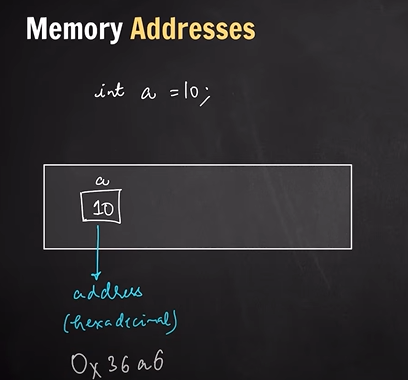 Memory Addresses
int a = 10;
a
10
address
(hexadecimal)
0x36a6